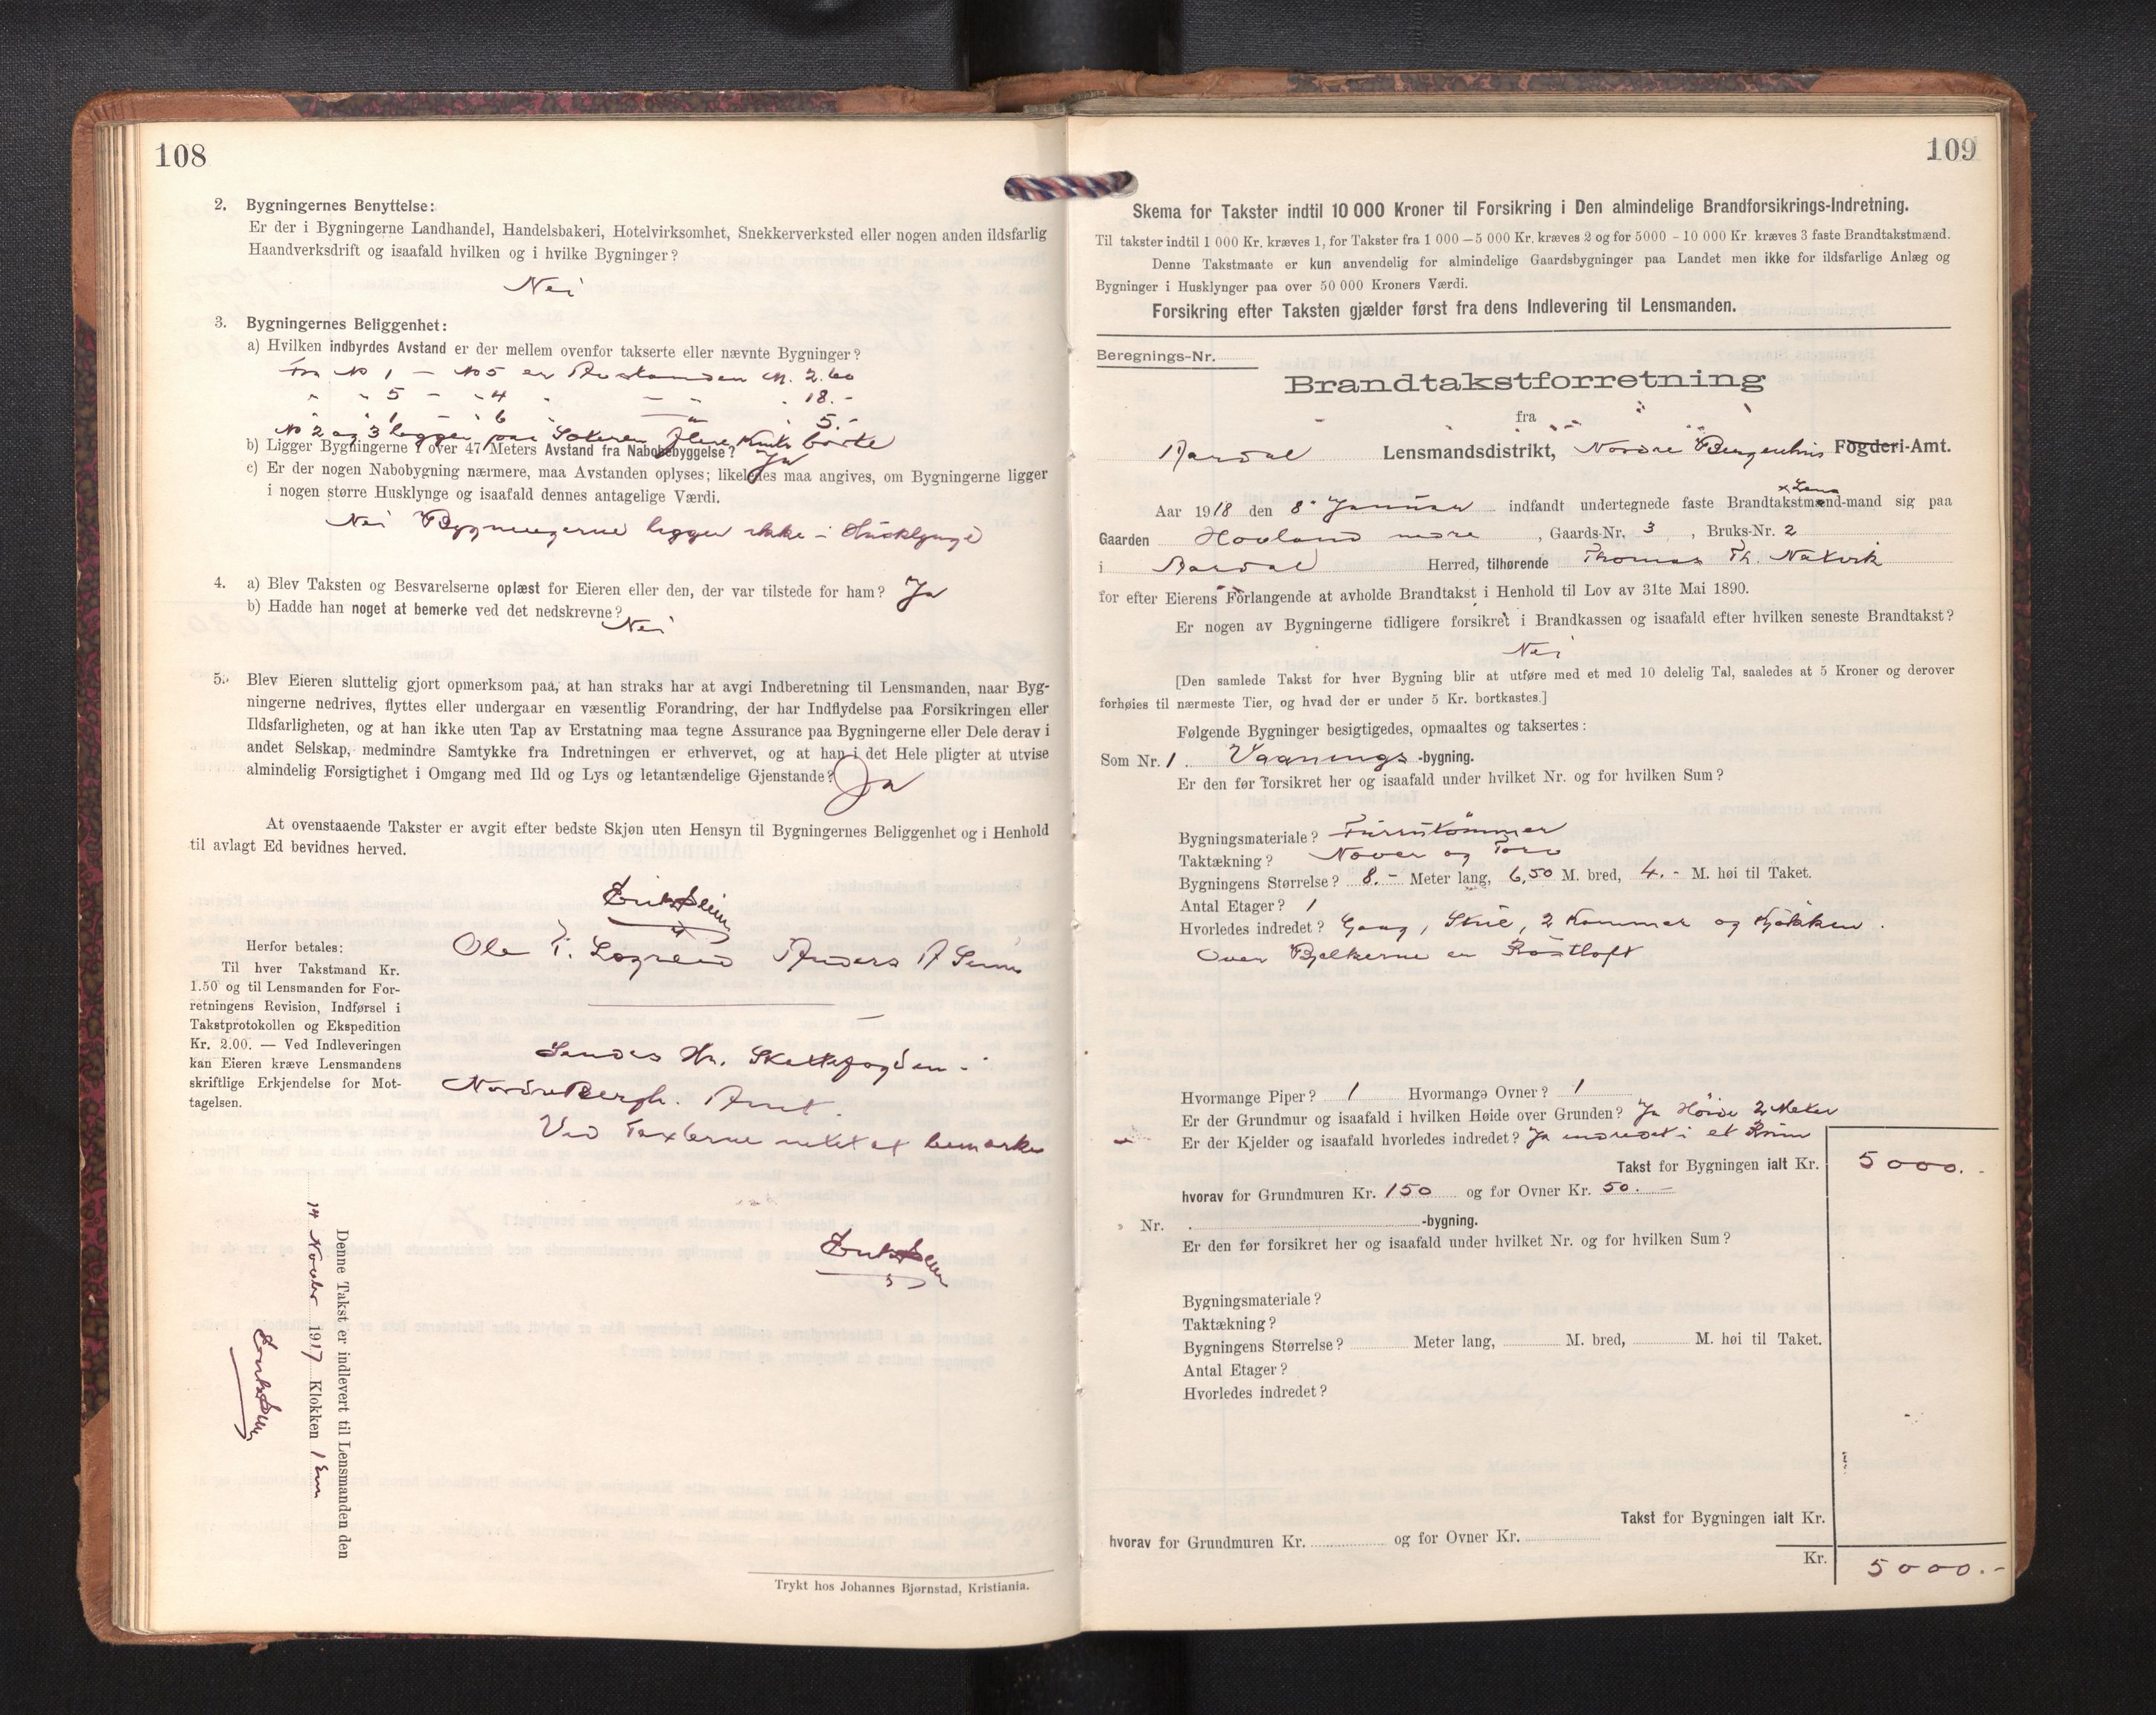 108
2. Bygningernes Benyttelse:
Er der i Bygningerne Landhandel, Handelsbakeri, Hotelvirksomhet, Snekkerverksted eller nogen anden ildsfarlig
Haandverksdrift og isaafald hvilken og i hvilke Bygninger?
Nei
3. Bygningernes Beliggenhet:
a) Hvilken indbyrdes Avstand er der mellem ovenfor takserte eller nævnte Bygninger?
Fra No 1 — No 5 er Avstanden M. 2.60
" " 5 — " 4 " — " " 18.-
" " 1 — " 6 " — " " 5.-
No 2 og 3 ligger paa Støler flere borte
b) Ligger Bygningerne i over 47 Meters Avstand fra Nabobebyggelse? Ja
c) Er der nogen Nabobygning nærmere, maa Avstanden oplyses; likeledes maa angives, om Bygningerne ligger
i nogen større Husklynge og isaafald dennes antagelige Værdi.
Nei Bygningerne ligger ikke i Husklynge
4. a) Blev Taksten og Besvarelserne oplæst for Eieren eller den, der var tilstede for ham? Ja
b) Hadde han noget at bemerke ved det nedskrevne?
Nei
5. Blev Eieren sluttelig gjort opmerksom paa, at han straks har at avgi Indberetning til Lensmanden, naar Byg-
ningerne nedrives, flyttes eller undergaar en væsentlig Forandring, der har Indflydelse paa Forsikringen eller
Ildsfarligheten, og at han ikke uten Tap av Erstatning maa tegne Assurance paa Bygningerne eller Dele derav i
andet Selskap, medmindre Samtykke fra Indretningen er erhvervet, og at han i det Hele pligter at utvise
almindelig Forsigtighet i Omgang med Ild og Lys og letantændelige Gjenstande? Ja
At ovenstaaende Takster er avgit efter bedste Skjøn uten Hensyn til Bygningernes Beliggenhet og i Henhold
til avlagt Ed bevidnes herved.
Ole T. Anders A
Herfor betales:
Til hver Takstmand Kr.
1.50 og til Lensmanden for For-
retningens Revision, Indførsel i
Takstprotokollen og Ekspedition
Kr. 2.00. — Ved Indleveringen
kan Eieren kræve Lensmandens
skriftlige Erkjendelse for Mot-
tagelsen.
Sendes Hr. Skattefogden i
Nordre Bergh. Amt.
Ved Taxterne intet at bemærke
Denne Takst er indlevert til Lensmanden den
14 Novbr 1917 Klokken 1 Em
Trykt hos Johannes Bjørnstad, Kristiania.
109
Skema for Takster indtil 10 000 Kroner til Forsikring i Den almindelige Brandforsikrings-Indretning.
Til takster indtil 1 000 Kr. kræves 1, for Takster fra 1 000 — 5 000 Kr. kræves 2 og for 5000 - 10 000 Kr. kræves 3 faste Brandtakstmænd.
Denne Takstmaate er kun anvendelig for almindelige Gaardsbygninger paa Landet men ikke for ildsfarlige Anlæg og
Bygninger i Husklynger paa over 50 000 Kroners Værdi.
Forsikring efter Taksten gjælder først fra dens Indlevering til Lensmanden.
Beregnings-Nr.
Brandtakstforretning
fra
Aardal Lensmandsdistrikt, Nordre Bergenhus Fogderi-Amt.
Aar 1918 den 8. Januar indfandt undertegnede faste Brandtakstmænd-mand sig paa
Gaarden Hovland nedre, Gaards-Nr. 3, Bruks-Nr. 2
i Aardal Herred, tilhørende Thomas Th. Natvik
for efter Eierens Forlangende at avholde Brandtakst i Henhold til Lov av 31te Mai 1890.
Er nogen av Bygningerne tidligere forsikret i Brandkassen og isaafald efter hvilken seneste Brandtakst?
Nei
[Den samlede Takst for hver Bygning blir at utføre med et med 10 delelig Tal, saaledes at 5 Kroner og derover
forhøies til nærmeste Tier, og hvad der er under 5 Kr. bortkastes.]
Følgende Bygninger besigtigedes, opmaaltes og taksertes:
Som Nr. 1. Vaanings-bygning.
Er den før forsikret her og isaafald under hvilket Nr. og for hvilken Sum?
Bygningsmateriale? Furutømmer
Taktækning? Næver og Torv
Bygningens Størrelse? 8.- Meter lang, 6,50 M. bred, 4.- M. høi til Taket.
Antal Etager? 1
Hvorledes indredet? Gang, Stue, 2 Kammer og Kjøkken.
Over Bjelkerne er Røstloft
Hvormange Piper? 1 Hvormange Ovner? 1
Er der Grundmur og isaafald i hvilken Høide over Grunden? Ja Høide 2 Meter
Er der Kjelder og isaafald hvorledes indredet? Ja indredet i et Rum
Takst for Bygningen ialt Kr. 5000.-
hvorav for Grundmuren Kr. 150 og for Ovner Kr. 50.-
Nr. -bygning.
Er den før forsikret her og isaafald under hvilket Nr. og for hvilken Sum?
Bygningsmateriale?
Taktækning?
Bygningens Størrelse? Meter lang, M. bred, M. høi til Taket.
Antal Etager?
Hvorledes indredet?
Takst for Bygningen ialt Kr.
hvorav for Grundmuren Kr. og for Ovner Kr.
Kr. 5000.-